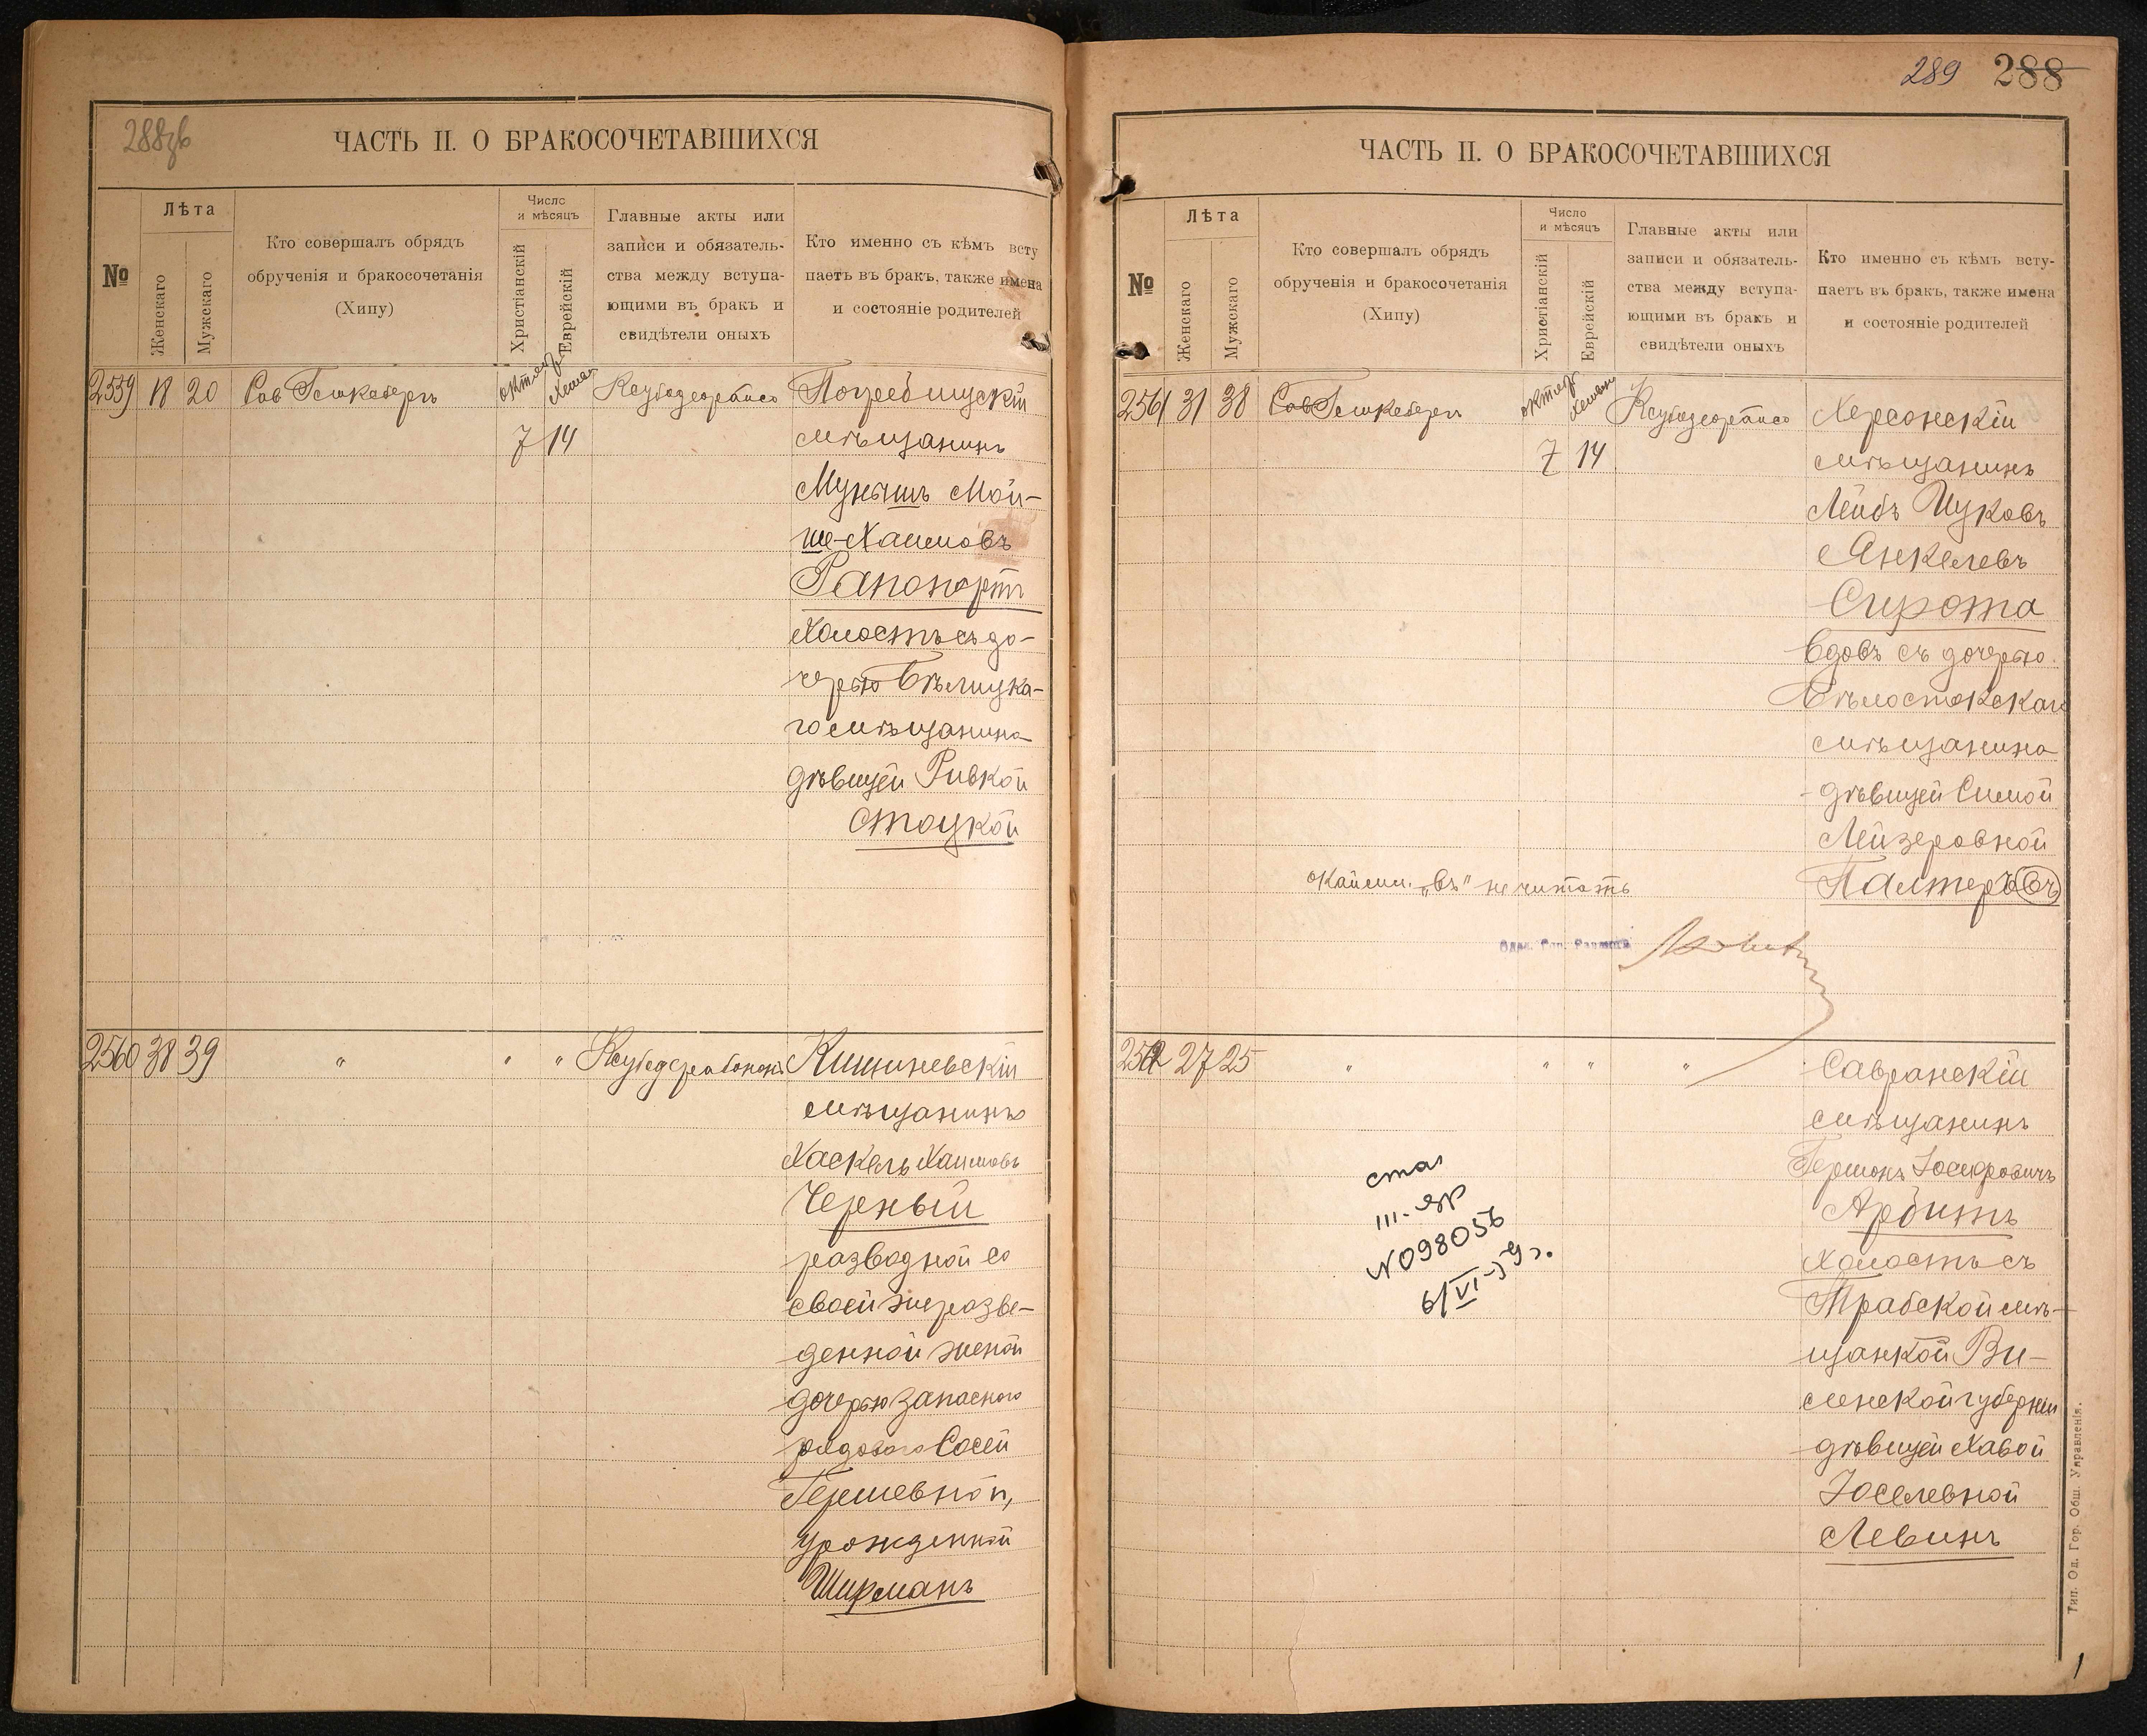 288зв
ЧАСТЬ II. О БРАКОСОЧЕТАВШИХСЯ
№
Лѣта
Женскаго
Мужскаго
Кто совершалъ обрядъ
обрученія и бракосочетанія
(Хипу)
Число
и мѣсяцъ
Христіанскій
Еврейскій
Главные акты или
записи и обязатель-
ства между вступа-
ющими въ бракъ и
свидѣтели оныхъ
Кто именно съ кѣмъ всту
паетъ въ бракъ, также имена
и состояніе родителей
2559 18 20
7 14
Погребищскій
мѣщанинъ
Мунышъ Мой-
ше-Хаимовъ
Рапопортъ
холостъ съ до-
черью Бѣлицка-
го мѣщанина
дѣвицей Ривкой
Стоцкой
2560 38 39 " " "
Кишиневскій
мѣщанинъ
Хаскель Хаимовъ
Черный
разводной со
своей же разве-
денной женой
дочерью запасного
рядового Сосей
Гершевной,
урожденной
Ширманъ
289 288
ЧАСТЬ II. О БРАКОСОЧЕТАВШИХСЯ
№
Лѣта
Женскаго
Мужскаго
Кто совершалъ обрядъ
обрученія и бракосочетанія
(Хипу)
Число
и мѣсяцъ
Христіанскій
Еврейскій
Главные акты или
записи и обязатель-
ства между вступа-
ющими въ бракъ и
свидѣтели оныхъ
Кто именно съ кѣмъ всту-
паетъ въ бракъ, также имена
и состояніе родителей
2561 31 38
7 14
Херсонскій
мѣщанинъ
Лейбъ Ицковъ
Анкелевъ
Сирота
вдовъ съ дочерью
Бѣлостокскаго
мѣщанина
дѣвицей Симой
Лейзеровной
Палтеръ(въ)
окайми. „въ" не читать
Одес. Гор. Раввинъ
2562 27 25 " " " "
Савранскій
мѣщанинъ
Гершонъ Іосифовичъ
Арбитъ
холостъ съ
Трабской мѣ-
щанкой Ви-
ленской губерніи
дѣвицей Хавой
Іоселевной
Левинъ
N098056
6/VI-39г.
Тип. Од. Гор. Общ. Управленія.